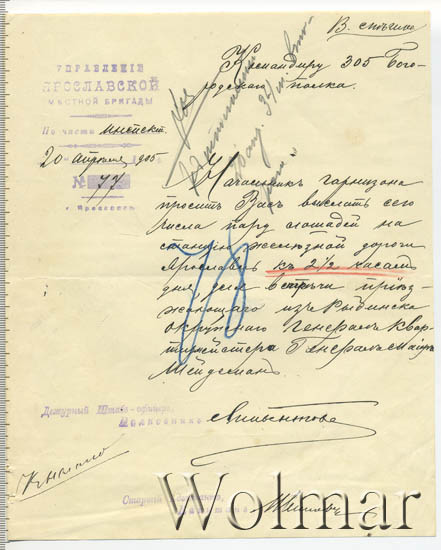 В. спѣшно
Командиру 305 Бого-
родскаго полка.
УПРАВЛЕНІЕ
ЯРОСЛАВСКОЙ
МѢСТНОЙ БРИГАДЫ
По части
20 апрѣля 905
№ 77
г. Ярославль
Начальникъ гарнизона
проситъ Васъ выслать сего
числа пару лошадей на
станцію желѣзной дороги
Ярославль къ 2½ часамъ
дня для встрѣчи пріѣз-
жающаго изъ Рыбинска
Окружнаго Генералъ Квар-
тирмейстера Генералъ маіора
78
Дежурный Штабъ-офицеръ,
Полковникъ
Старшій Адъютантъ,
Капитанъ
Wolmar